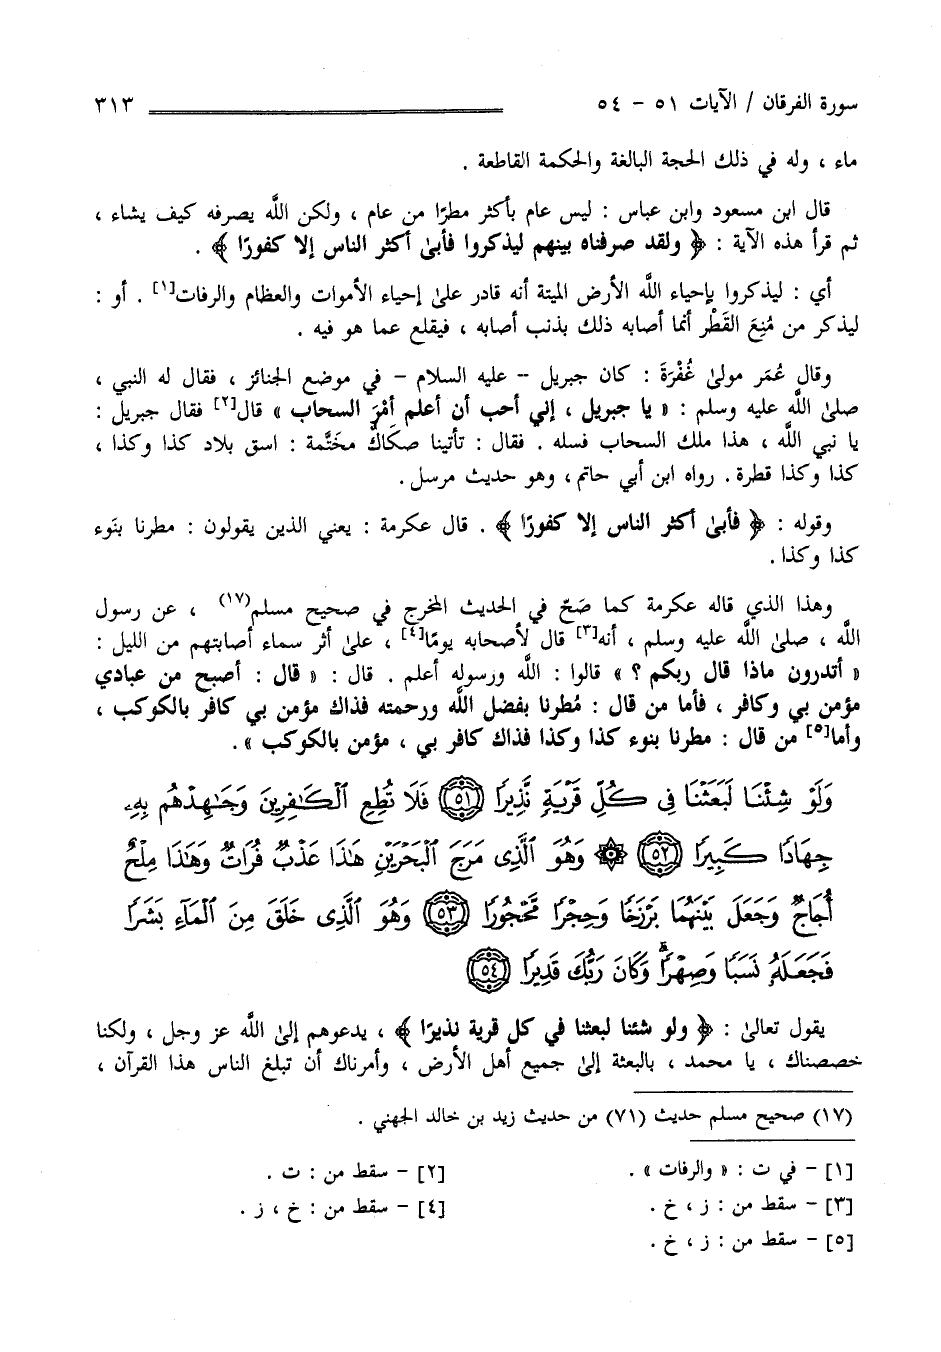 سورة الفرقان / الآيات ٥١ - ٥٤ ٣١٣
ماء ، وله في ذلك الحجة البالغة والحكمة القاطعة .
قال ابن مسعود وابن عباس : ليس عام بأكثر مطرًا من عام ، ولكن اللَّه يصرفه كيف يشاء ،
ثم قرأ هذه الآية : ﴿ ولقد صرفناه بينهم ليذكروا فأبىٰ أكثر الناس إلا كفورًا ﴾ .
أي : ليذكروا بإحياء اللَّه الأرض الميتة أنه قادر علىٰ إحياء الأموات والعظام والرفات[١] . أو :
ليذكر من مُنِعَ القَطْر أنما أصابه ذلك بذنب أصابه ، فيقلع عما هو فيه .
وقال عُمَر مولىٰ غُفْرَة : كان جبريل -- عليه السلام - في موضع الجنائز ، فقال له النبي ،
صلىٰ اللَّه عليه وسلم : « يا جبريل ، إني أحب أن أعلم أمْرَ السحاب » قال[٢] فقال جبريل :
يا نبي اللَّه ، هذا ملك السحاب فسله . فقال : تأتينا صكَاكٌ مختَّمة : اسق بلاد كذا وكذا ،
كذا وكذا قطرة . رواه ابن أبي حاتم ، وهو حديث مرسل .
وقوله : ﴿ فأبىٰ أكثر الناس إلا كفورًا ﴾ . قال عكرمة : يعني الذين يقولون : مطرنا بنَوء
كذا وكذا .
وهذا الذي قاله عكرمة كما صَحّ في الحديث المخرج في صحيح مسلم(١٧) ، عن رسول
اللَّه ، صلىٰ اللَّه عليه وسلم ، أنه[٣] قال لأصحابه يومًا[٤] ، علىٰ أثر سماء أصابتهم من الليل :
« أتدرون ماذا قال ربكم ؟ » قالوا : اللَّه ورسوله أعلم . قال : « قال : أصبح من عبادي
مؤمن بي وكافر ، فأما من قال : مُطرنا بفضل اللَّه ورحمته فذاك مؤمن بي كافر بالكوكب ،
وأما[٥] من قال : مطرنا بنوء كذا وكذا فذاك كافر بي ، مؤمن بالكوكب » .
وَلَوْ شِئْنَا لَبَعَثْنَا فِى كُلِّ قَرْيَةٍ نَّذِيرًا ۝٥١ فَلَا تُطِعِ ٱلْكَٰفِرِينَ وَجَٰهِدْهُم بِهِۦ
جِهَادًا كَبِيرًا ۝٥٢ ۞ وَهُوَ ٱلَّذِى مَرَجَ ٱلْبَحْرَيْنِ هَٰذَا عَذْبٌ فُرَاتٌ وَهَٰذَا مِلْحٌ
أُجَاجٌ وَجَعَلَ بَيْنَهُمَا بَرْزَخًا وَحِجْرًا مَّحْجُورًا ۝٥٣ وَهُوَ ٱلَّذِى خَلَقَ مِنَ ٱلْمَآءِ بَشَرًا
فَجَعَلَهُۥ نَسَبًا وَصِهْرًا ۗ وَكَانَ رَبُّكَ قَدِيرًا ۝٥٤
يقول تعالىٰ : ﴿ ولو شئنا لبعثنا في كل قرية نذيرًا ﴾ ، يدعوهم إلىٰ اللَّه عز وجل ، ولكنا
خصصناك ، يا محمد ، بالبعثة إلىٰ جميع أهل الأرض ، وأمرناك أن تبلغ الناس هذا القرآن ،
(١٧) صحيح مسلم حديث (٧١) من حديث زيد بن خالد الجهني .
[١] - في ت : « والرفات » . [٢] - سقط من : ت .
[٣] - سقط من : ز ، خ . [٤] - سقط من : خ ، ز .
[٥] - سقط من : ز ، خ .